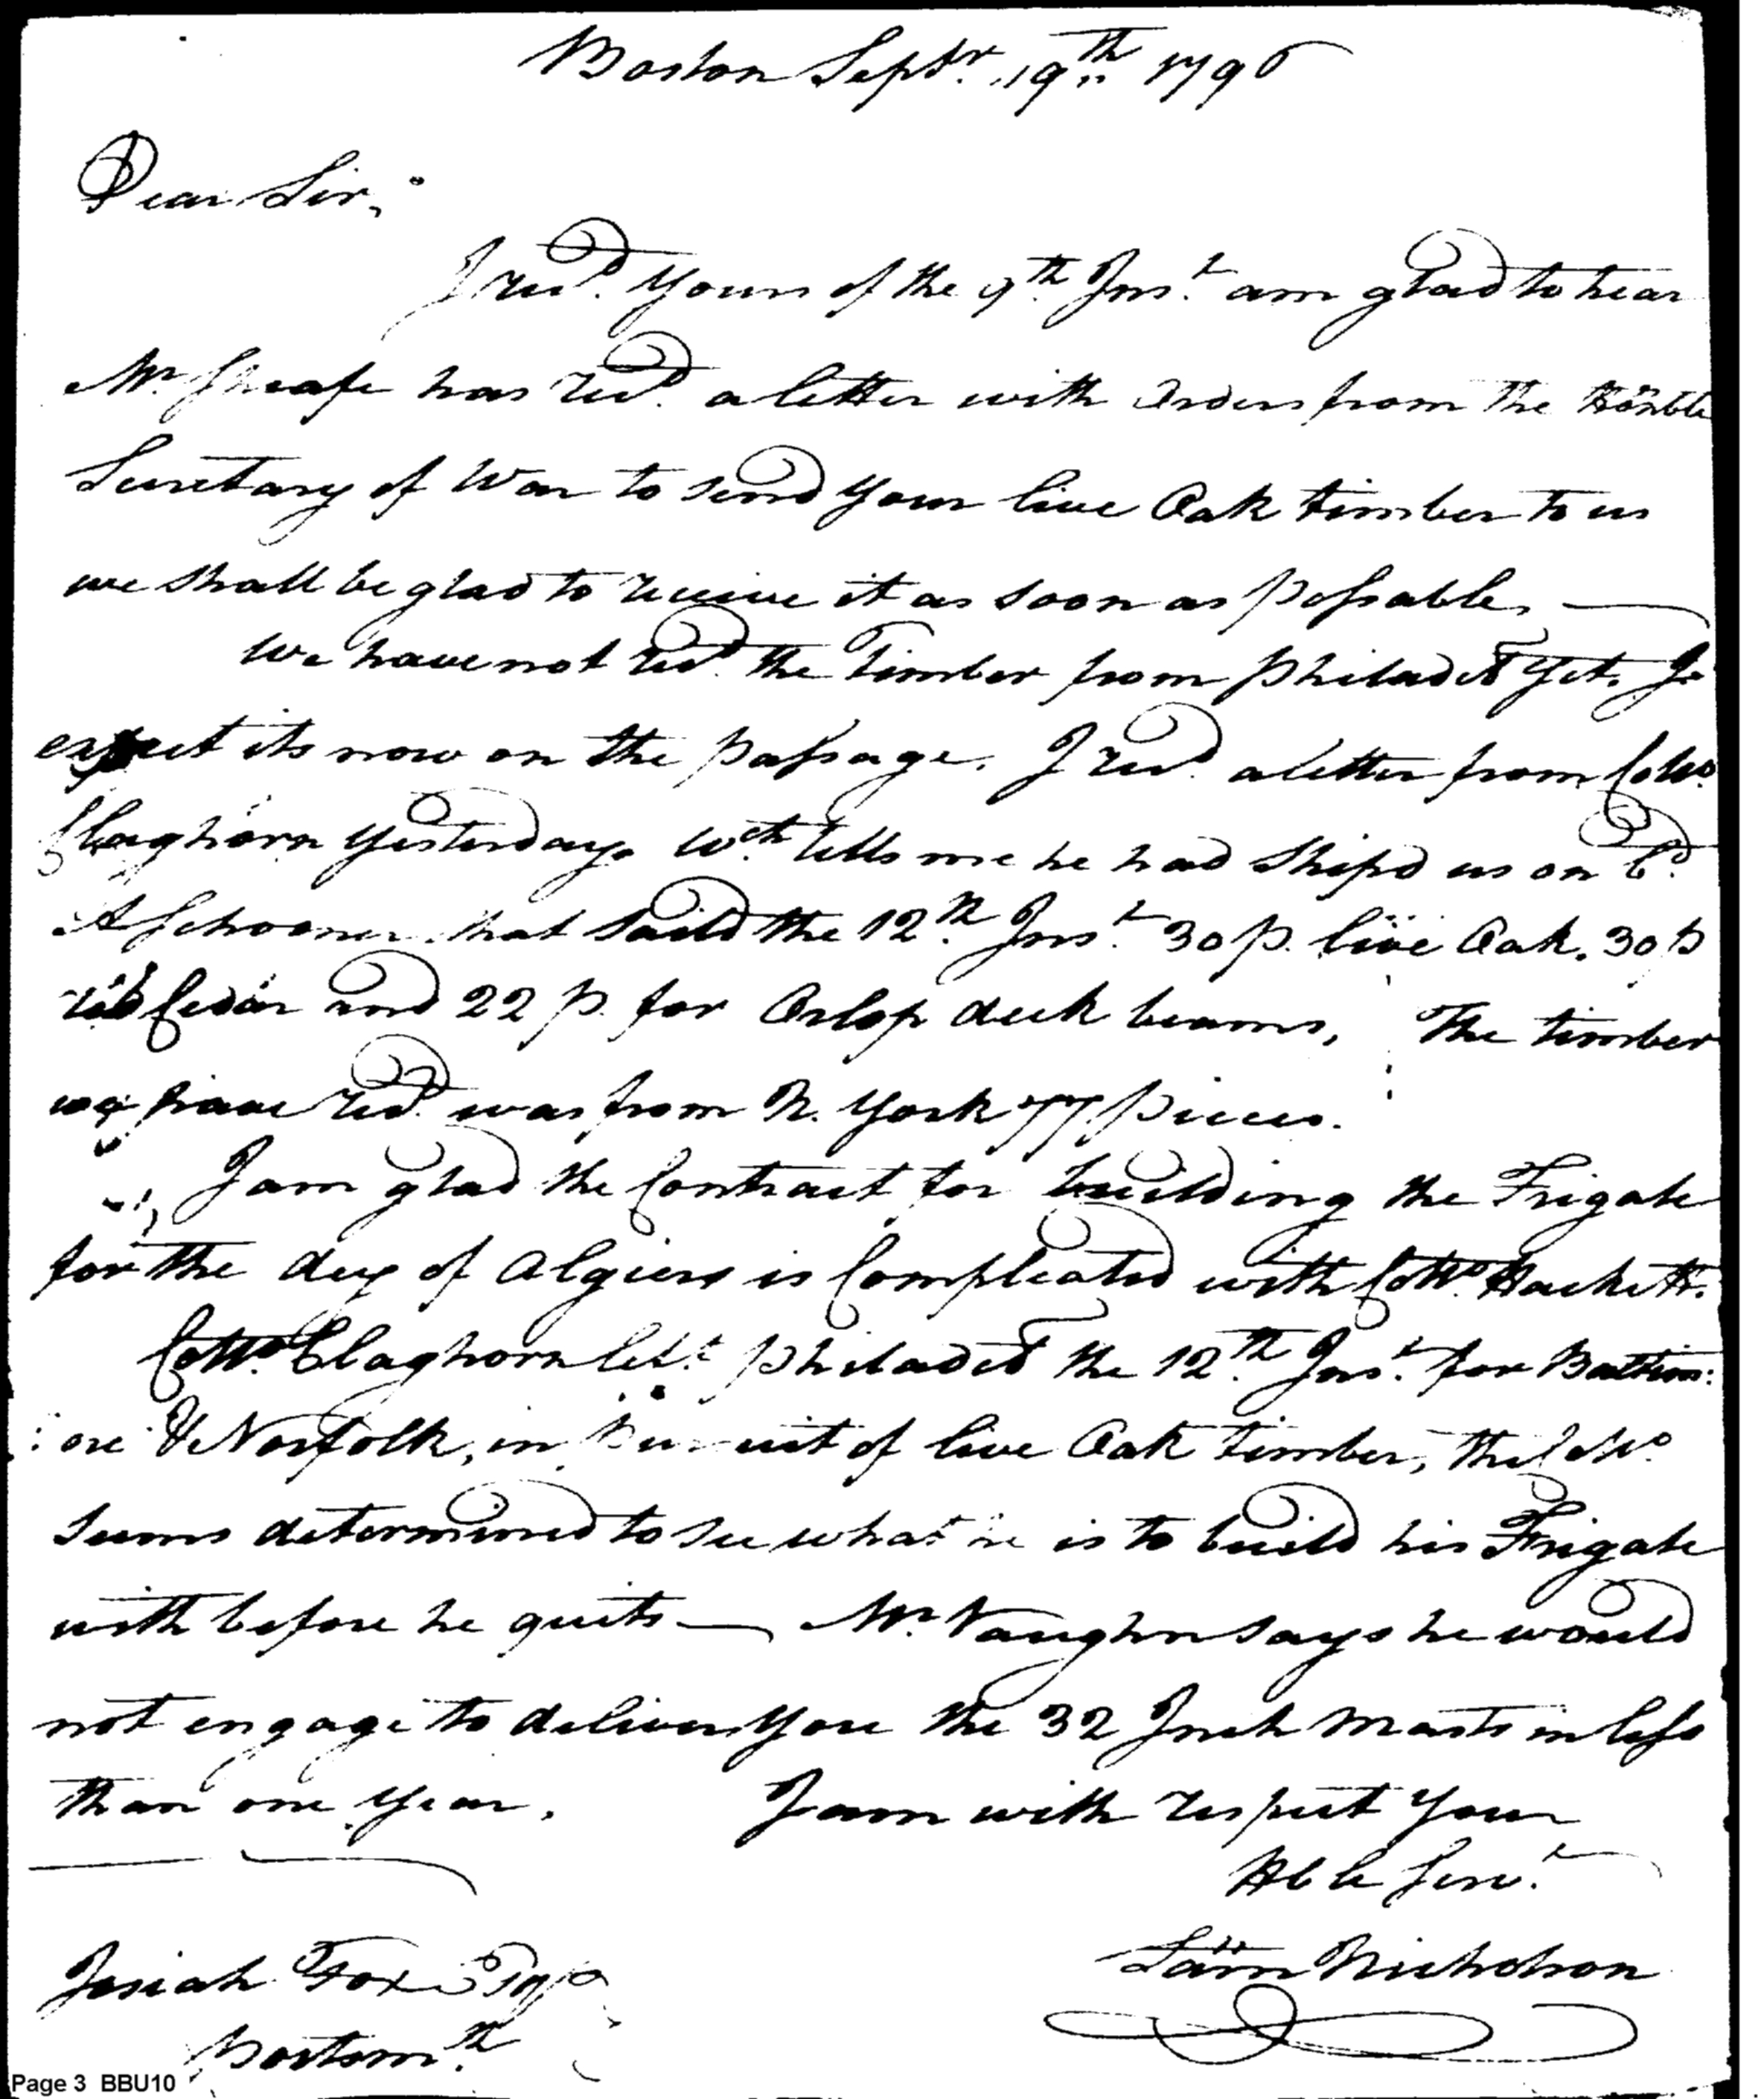 Boston Septr. 19th 1796
Dear Sir,
I recd. yours of the 9th. Inst. am glad to hear
Mr. Sheafe has recd. a letter with Orders from the Honble
Secretary of War to send your live Oak timber to us
we shall be glad to receive it as soon as possable,
We have not recd. the Timber from Philade yet. I
expect its now on the passage. I recd. a letter from Collo.
Claghorn yesterday wch. tells me he had shipd us on Bd.
A Schooner that saild the 12th. Inst. 30 p. live Oak. 30 p
red Cedar and 22 p. for Orlop deck beams, The timber
we have recd. was from N. York 77 pieces.
I am glad the Contract for building the Frigate
for the dey of Algiers is Compleated with Collo. Hackett.
Collo. Claghorn left Philade the 12th. Inst. for Baltim:
:ore & Norfolk, in pursuit of live Oak timber, the Collo.
seems determined to see what he is to build his Frigate
with before he quits — Mr. Vaughn says he would
not engage to deliver you the 32 Inch masts in less
than one year. I am with respect your
Hble Servt.
Sam Nicholson
Josiah Fox Esqr
Portsmth
Page 3 BBU10